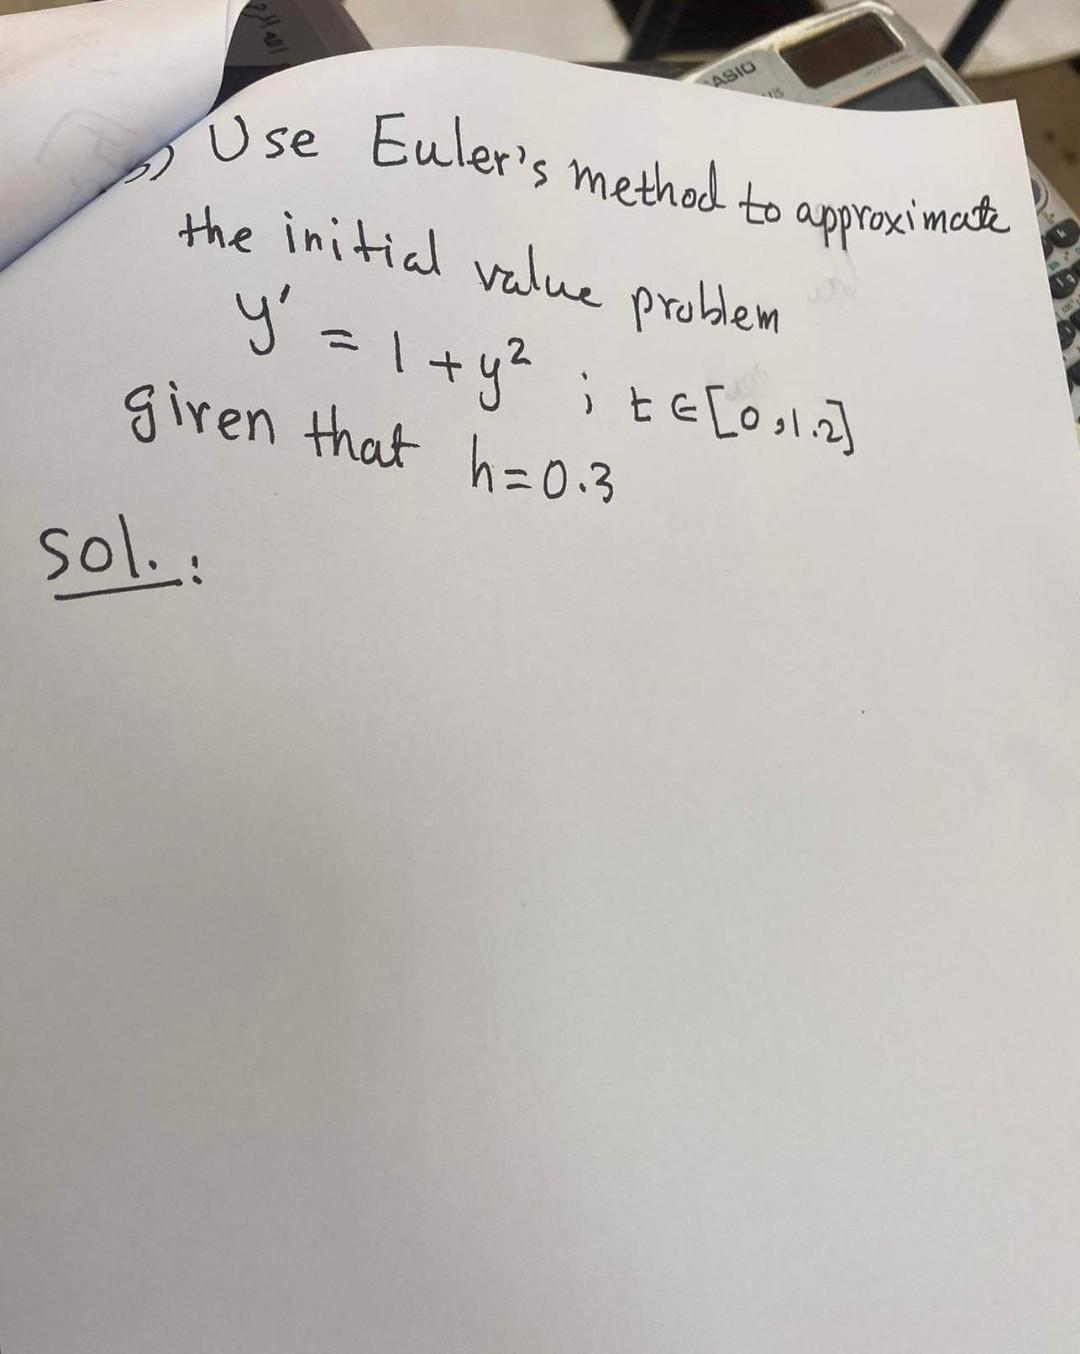 Use Euler's method to approximate
the initial value problem
y' = 1 + y² ; t ∈ [0,1.2]
given that h=0.3
Sol. :